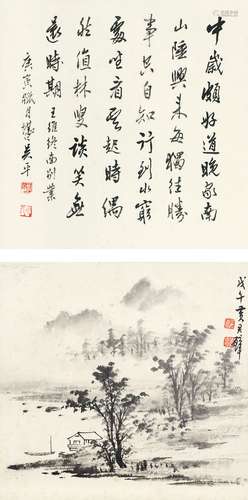 中歲頗好道晚家南
山陲興來每獨往勝
事空自知行到水窮
處坐看雲起時偶
然值林叟談笑無
還時期 王維終南別業
庚寅臘月 吳平
戊午黃君璧